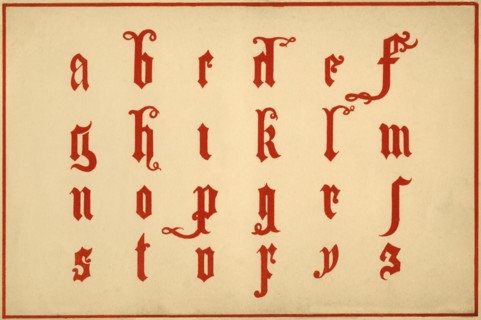 a b c d e f
g h i k l m
n o p q r ſ
s t v x y z